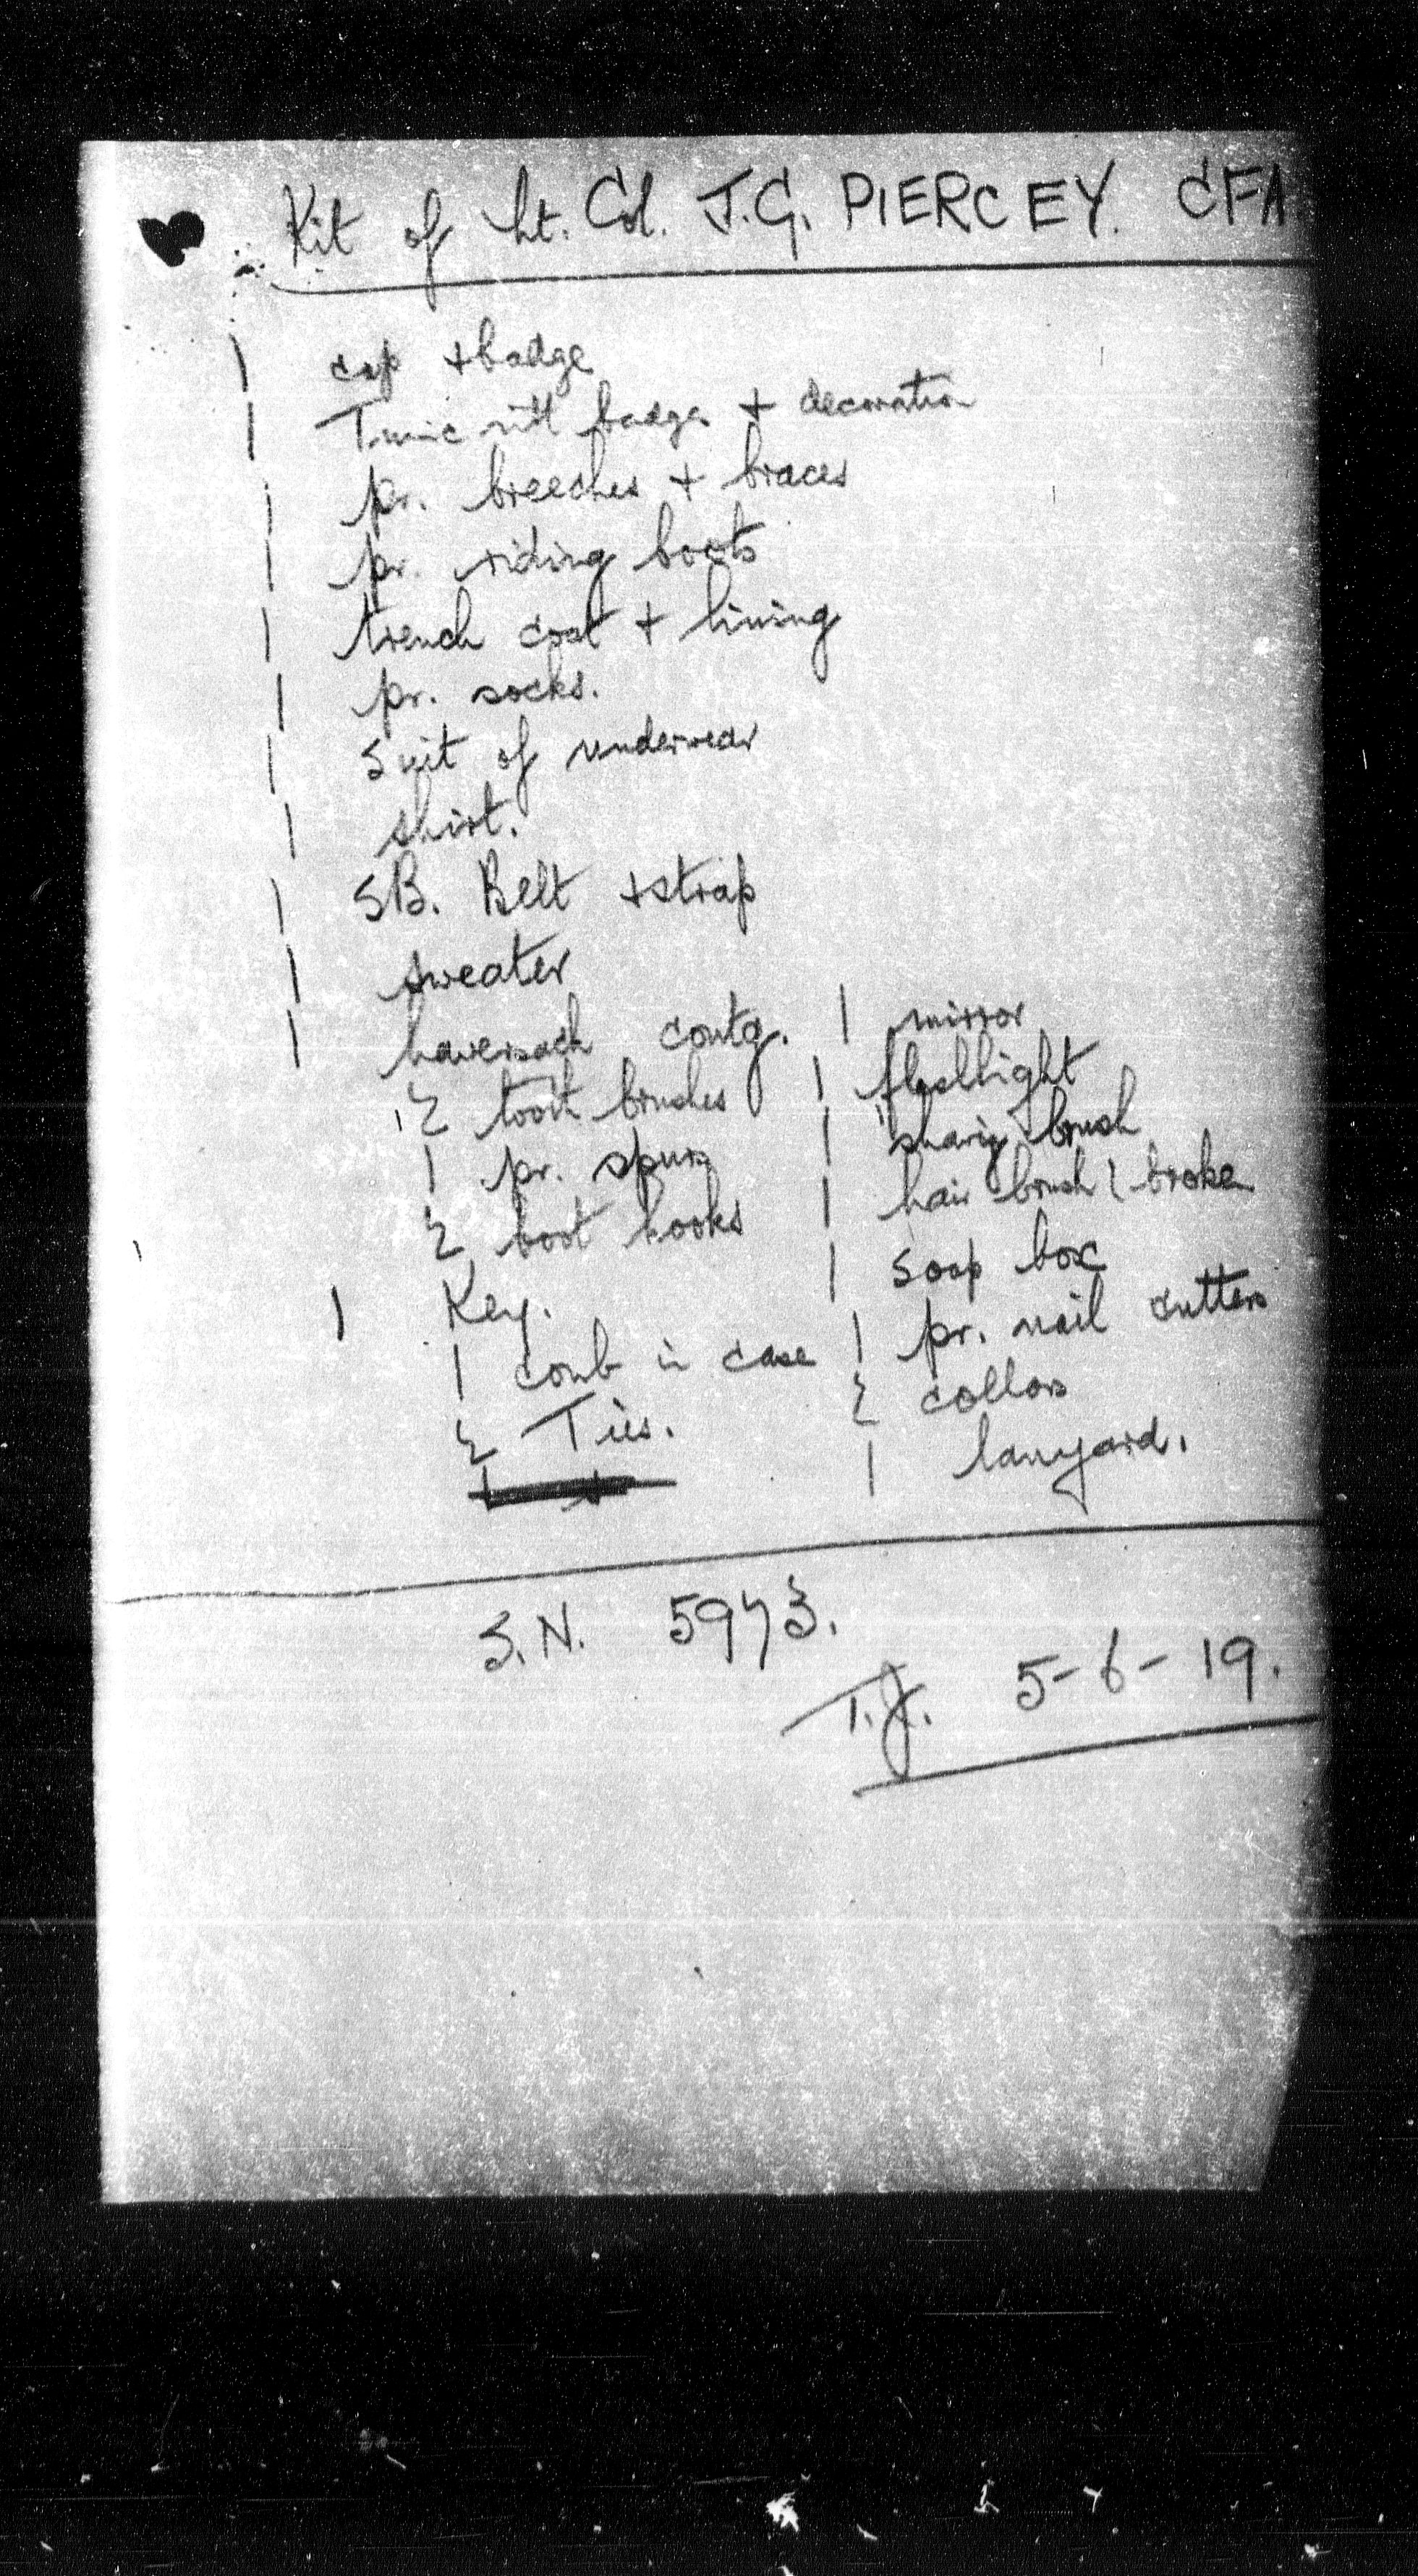 Kit of Lt. Col. J.G. PIERCEY. CFA
1 cap + badge
1 Tunic with badges + decoration
1 pr. breeches + braces
1 pr. riding boots
1 trench coat + lining
1 pr. socks.
1 Suit of underwear
1 shirt.
1 SB. Belt + strap
1 sweater
1 haversack contg. 1 mirror
2 tooth brushes 1 flashlight
1 pr. spurs 1 shaving brush
2 boot hooks 1 hair brush broken
1 Key. 1 soap box
1 comb in case 1 pr. nail cutters
2 Ties. 2 collars
1 lanyard.
S.N. 5973.
T.J. 5-6-19.